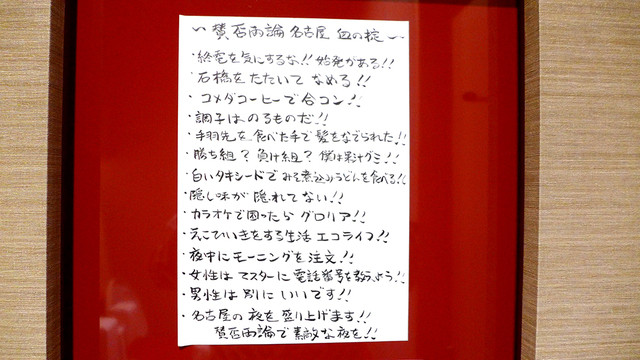 〜賛否両論 名古屋 血の掟〜
・終電を気にするな!! 始発がある!!
・石橋をたたいて なめる!!
・コメダコーヒーで合コン!!
・調子は のるものだ!!
・手羽先を 食べた手で 髪をなでられた!!
・勝ち組? 負け組? 僕は果汁グミ!!
・白いタキシードで みそ煮込みうどんを食べる!!
・隠し味が 隠れてない!!
・カラオケで困ったら グロリア!!
・えこひいきをする生活 エコライフ!!
・夜中に モーニングを 注文!!
・女性は マスターに 電話番号を教えよう!!
・男性は 別に いいです!!
・名古屋の夜を 盛り上げます!!
賛否両論で 素敵な夜を!!